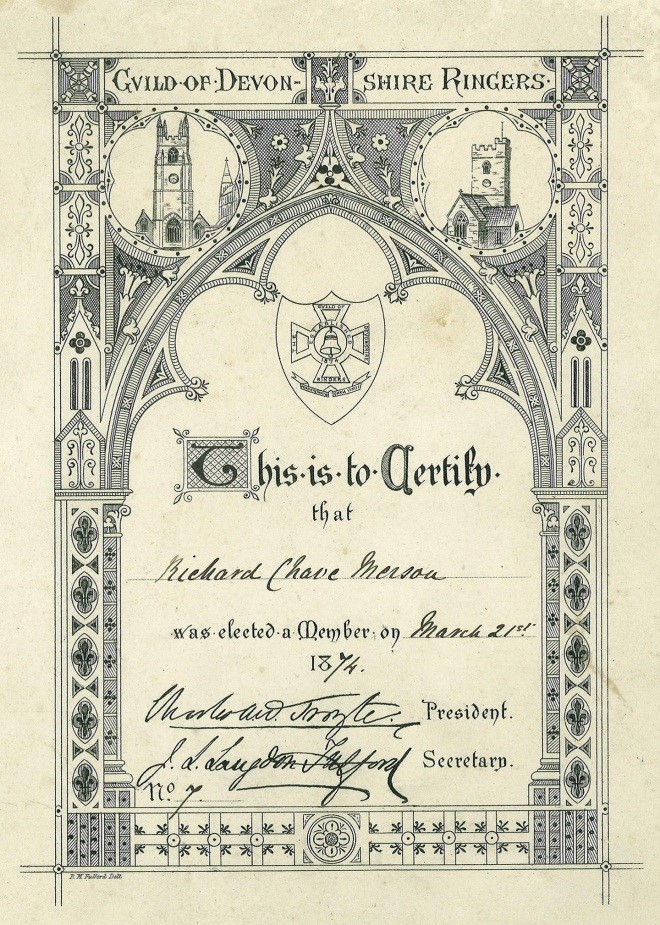 GVILD·OF·DEVON-SHIRE RINGERS·
GUILD OF
RINGERS
This·is·to·Certify·
that
Richard Chave Merson
was·elected·a·Member·on March 21st
1874.
President.
J. L. Langdon Fulford Secretary.
No 7